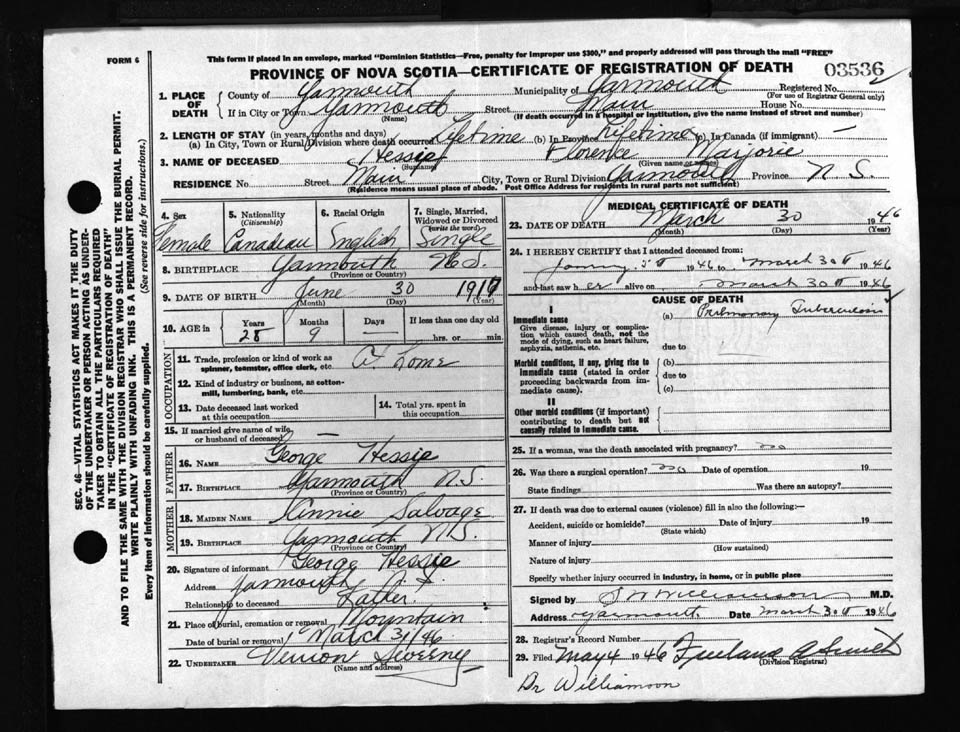 FORM 6
This form if placed in an envelope, marked "Dominion Statistics—Free, penalty for improper use $300," and properly addressed will pass through the mail "FREE"
PROVINCE OF NOVA SCOTIA—CERTIFICATE OF REGISTRATION OF DEATH 03536
1. PLACE OF DEATH County of Yarmouth Municipality of Yarmouth Registered No.
(For use of Registrar General only)
If in City or Town Yarmouth Street Main House No.
(Name) (If death occurred in a hospital or institution, give the name instead of street and number)
2. LENGTH OF STAY (in years, months and days)
(a) In City, Town or Rural Division where death occurred Lifetime (b) In Province Lifetime (c) In Canada (if immigrant) —
3. NAME OF DECEASED Hessie Florence Marjorie
(Surname) (Given name or names)
RESIDENCE No. Street Main City, Town or Rural Division Yarmouth Province N.S.
(Residence means usual place of abode. Post Office Address for residents in rural parts not sufficient)
4. Sex Female
5. Nationality (Citizenship) Canadian
6. Racial Origin English
7. Single, Married, Widowed or Divorced (write the word) Single
8. BIRTHPLACE Yarmouth N.S.
(Province or Country)
9. DATE OF BIRTH June 30 1917
(Month) (Day) (Year)
10. AGE in Years 28 Months 9 Days — If less than one day old
hrs. or min.
OCCUPATION
11. Trade, profession or kind of work as spinner, teamster, office clerk, etc. At Home
12. Kind of industry or business, as cotton-mill, lumbering, bank, etc.
13. Date deceased last worked at this occupation
14. Total yrs. spent in this occupation
15. If married give name of wife or husband of deceased —
FATHER
16. NAME George Hessie
17. BIRTHPLACE Yarmouth N.S.
(Province or Country)
MOTHER
18. MAIDEN NAME Annie Salvage
19. BIRTHPLACE Yarmouth N.S.
(Province or Country)
20. Signature of informant George Hessie
Address Yarmouth N.S.
Relationship to deceased Father
21. Place of burial, cremation or removal Mountain
Date of burial or removal March 31/46
22. UNDERTAKER Vernon Sweeny
(Name and address)
MEDICAL CERTIFICATE OF DEATH
23. DATE OF DEATH March 30 1946
(Month) (Day) (Year)
24. I HEREBY CERTIFY that I attended deceased from:
1946 to March 30 1946
and last saw her alive on March 30 1946
CAUSE OF DEATH
I
Immediate cause (a) Pulmonary Tuberculosis
Give disease, injury or complication which caused death, not the mode of dying, such as heart failure, asphyxia, asthenia, etc.
due to
Morbid conditions, if any, giving rise to immediate cause (stated in order proceeding backwards from immediate cause).
(b)
due to
(c)
II
Other morbid conditions (if important) contributing to death but not causally related to immediate cause.
25. If a woman, was the death associated with pregnancy? no
26. Was there a surgical operation? no Date of operation 19
State findings Was there an autopsy?
27. If death was due to external causes (violence) fill in also the following:—
Accident, suicide or homicide? Date of injury 19
(State which)
Manner of injury
(How sustained)
Nature of injury
Specify whether injury occurred in industry, in home, or in public place
Signed by Williamson M.D.
Address Yarmouth Date March 30 1946
28. Registrar's Record Number
29. Filed May 4 1946
(Division Registrar)
Dr Williamson
SEC. 46—VITAL STATISTICS ACT MAKES IT THE DUTY
OF THE UNDERTAKER OR PERSON ACTING AS UNDER-
TAKER TO OBTAIN ALL THE PARTICULARS REQUIRED
IN THE "CERTIFICATE OF REGISTRATION OF DEATH"
AND TO FILE THE SAME WITH THE DIVISION REGISTRAR WHO SHALL ISSUE THE BURIAL PERMIT.
WRITE PLAINLY WITH UNFADING INK. THIS IS A PERMANENT RECORD.
Every item of information should be carefully supplied. (See reverse side for instructions.)